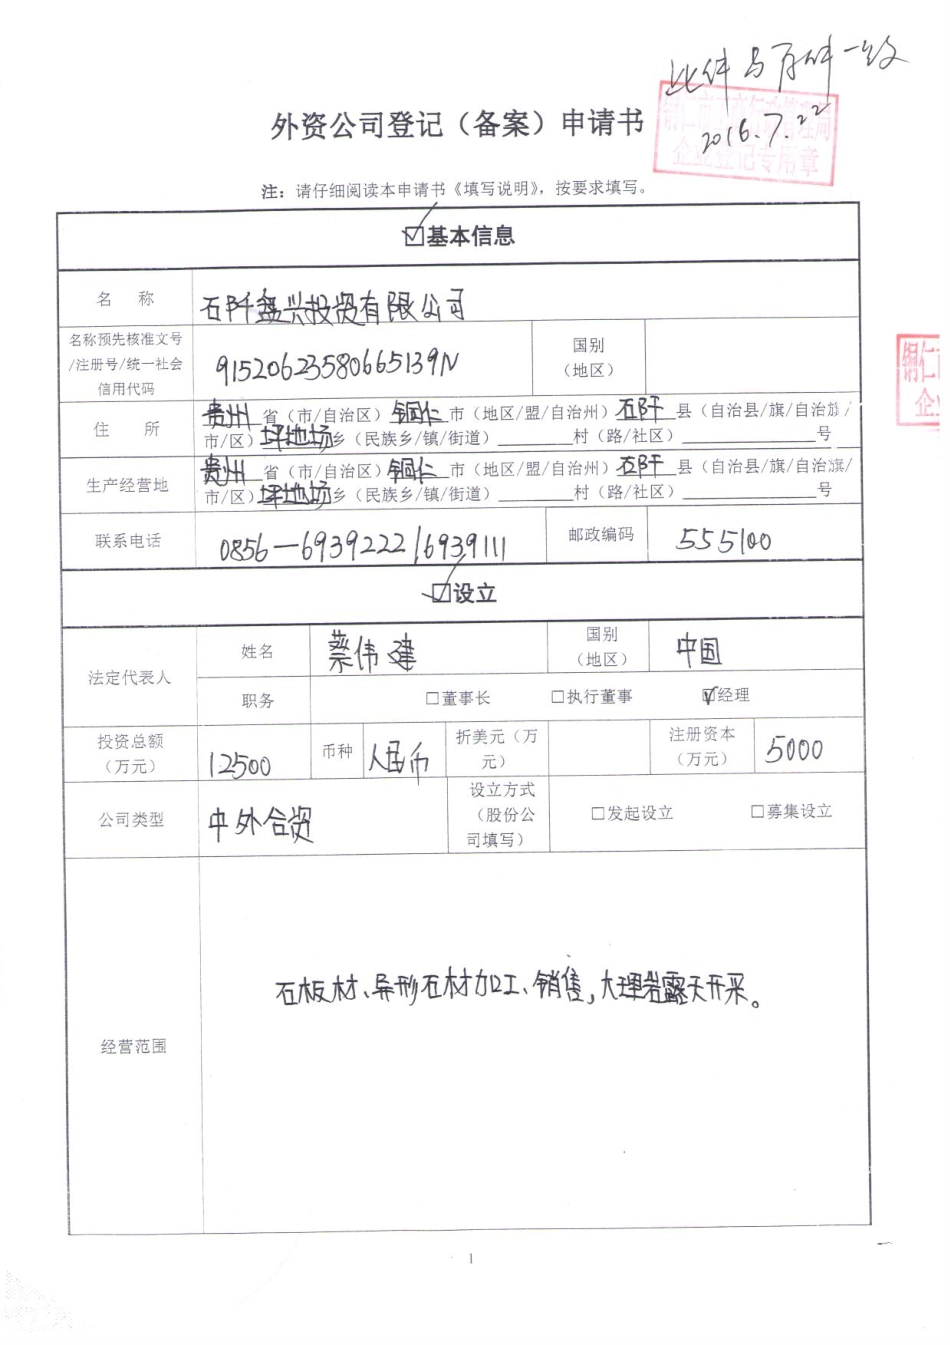 此件与原件一致
2016.7.22
铜仁市工商行政管理局
企业登记专用章
外资公司登记（备案）申请书
注：请仔细阅读本申请书《填写说明》，按要求填写。
☑基本信息
名 称 石阡盘兴投资有限公司
名称预先核准文号/注册号/统一社会信用代码 91520623580665139N 国别（地区）
住 所 贵州省（市/自治区）铜仁市（地区/盟/自治州）石阡县（自治县/旗/自治旗/
市/区）坪地场乡（民族乡/镇/街道）________村（路/社区）________号
生产经营地 贵州省（市/自治区）铜仁市（地区/盟/自治州）石阡县（自治县/旗/自治旗/
市/区）坪地场乡（民族乡/镇/街道）________村（路/社区）________号
联系电话 0856—6939222/6939111 邮政编码 555100
☑设立
法定代表人 姓名 蔡伟建 国别（地区） 中国
职务 □董事长 □执行董事 ☑经理
投资总额（万元） 12500 币种 人民币 折美元（万元） 注册资本（万元） 5000
公司类型 中外合资 设立方式（股份公司填写） □发起设立 □募集设立
经营范围 石板材、异形石材加工、销售，大理岩露天开采。
铜仁
企
1